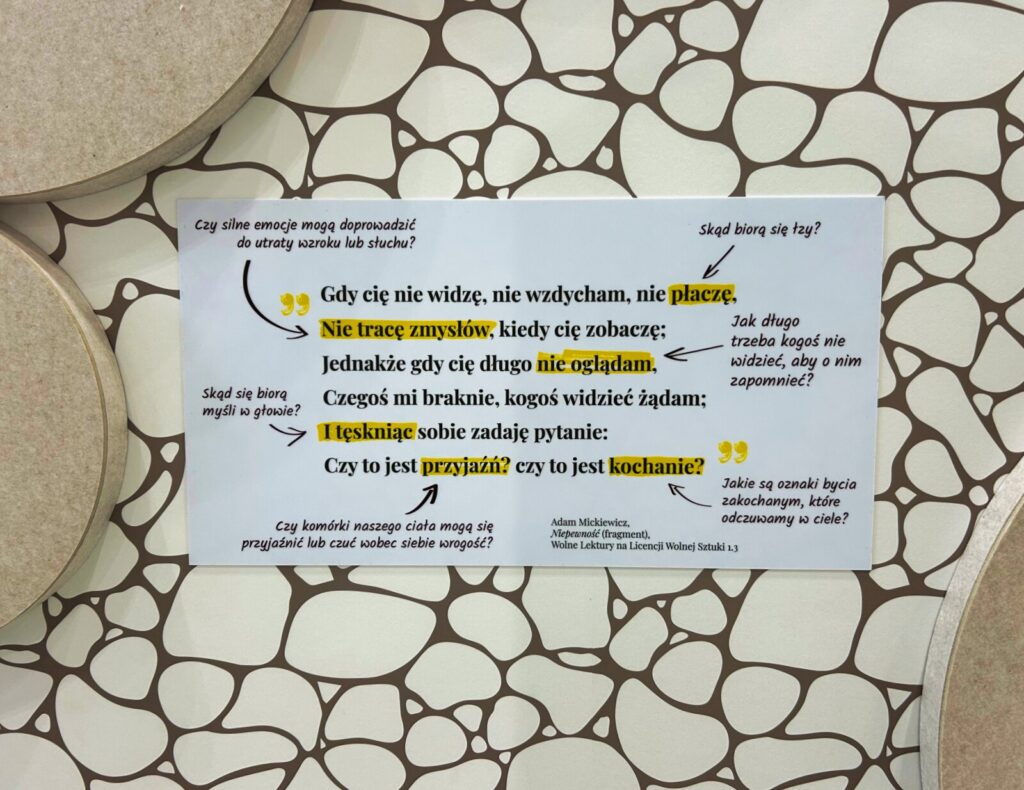 Czy silne emocje mogą doprowadzić
do utraty wzroku lub słuchu?
Skąd biorą się łzy?
Gdy cię nie widzę, nie wzdycham, nie płaczę,
Nie tracę zmysłów, kiedy cię zobaczę;
Jednakże gdy cię długo nie oglądam,
Czegoś mi braknie, kogoś widzieć żądam;
I tęskniąc sobie zadaję pytanie:
Czy to jest przyjaźń? czy to jest kochanie?
Jak długo
trzeba kogoś nie
widzieć, aby o nim
zapomnieć?
Skąd się biorą
myśli w głowie?
Jakie są oznaki bycia
zakochanym, które
odczuwamy w ciele?
Czy komórki naszego ciała mogą się
przyjaźnić lub czuć wobec siebie wrogość?
Adam Mickiewicz,
Niepewność (fragment),
Wolne Lektury na Licencji Wolnej Sztuki 1.3